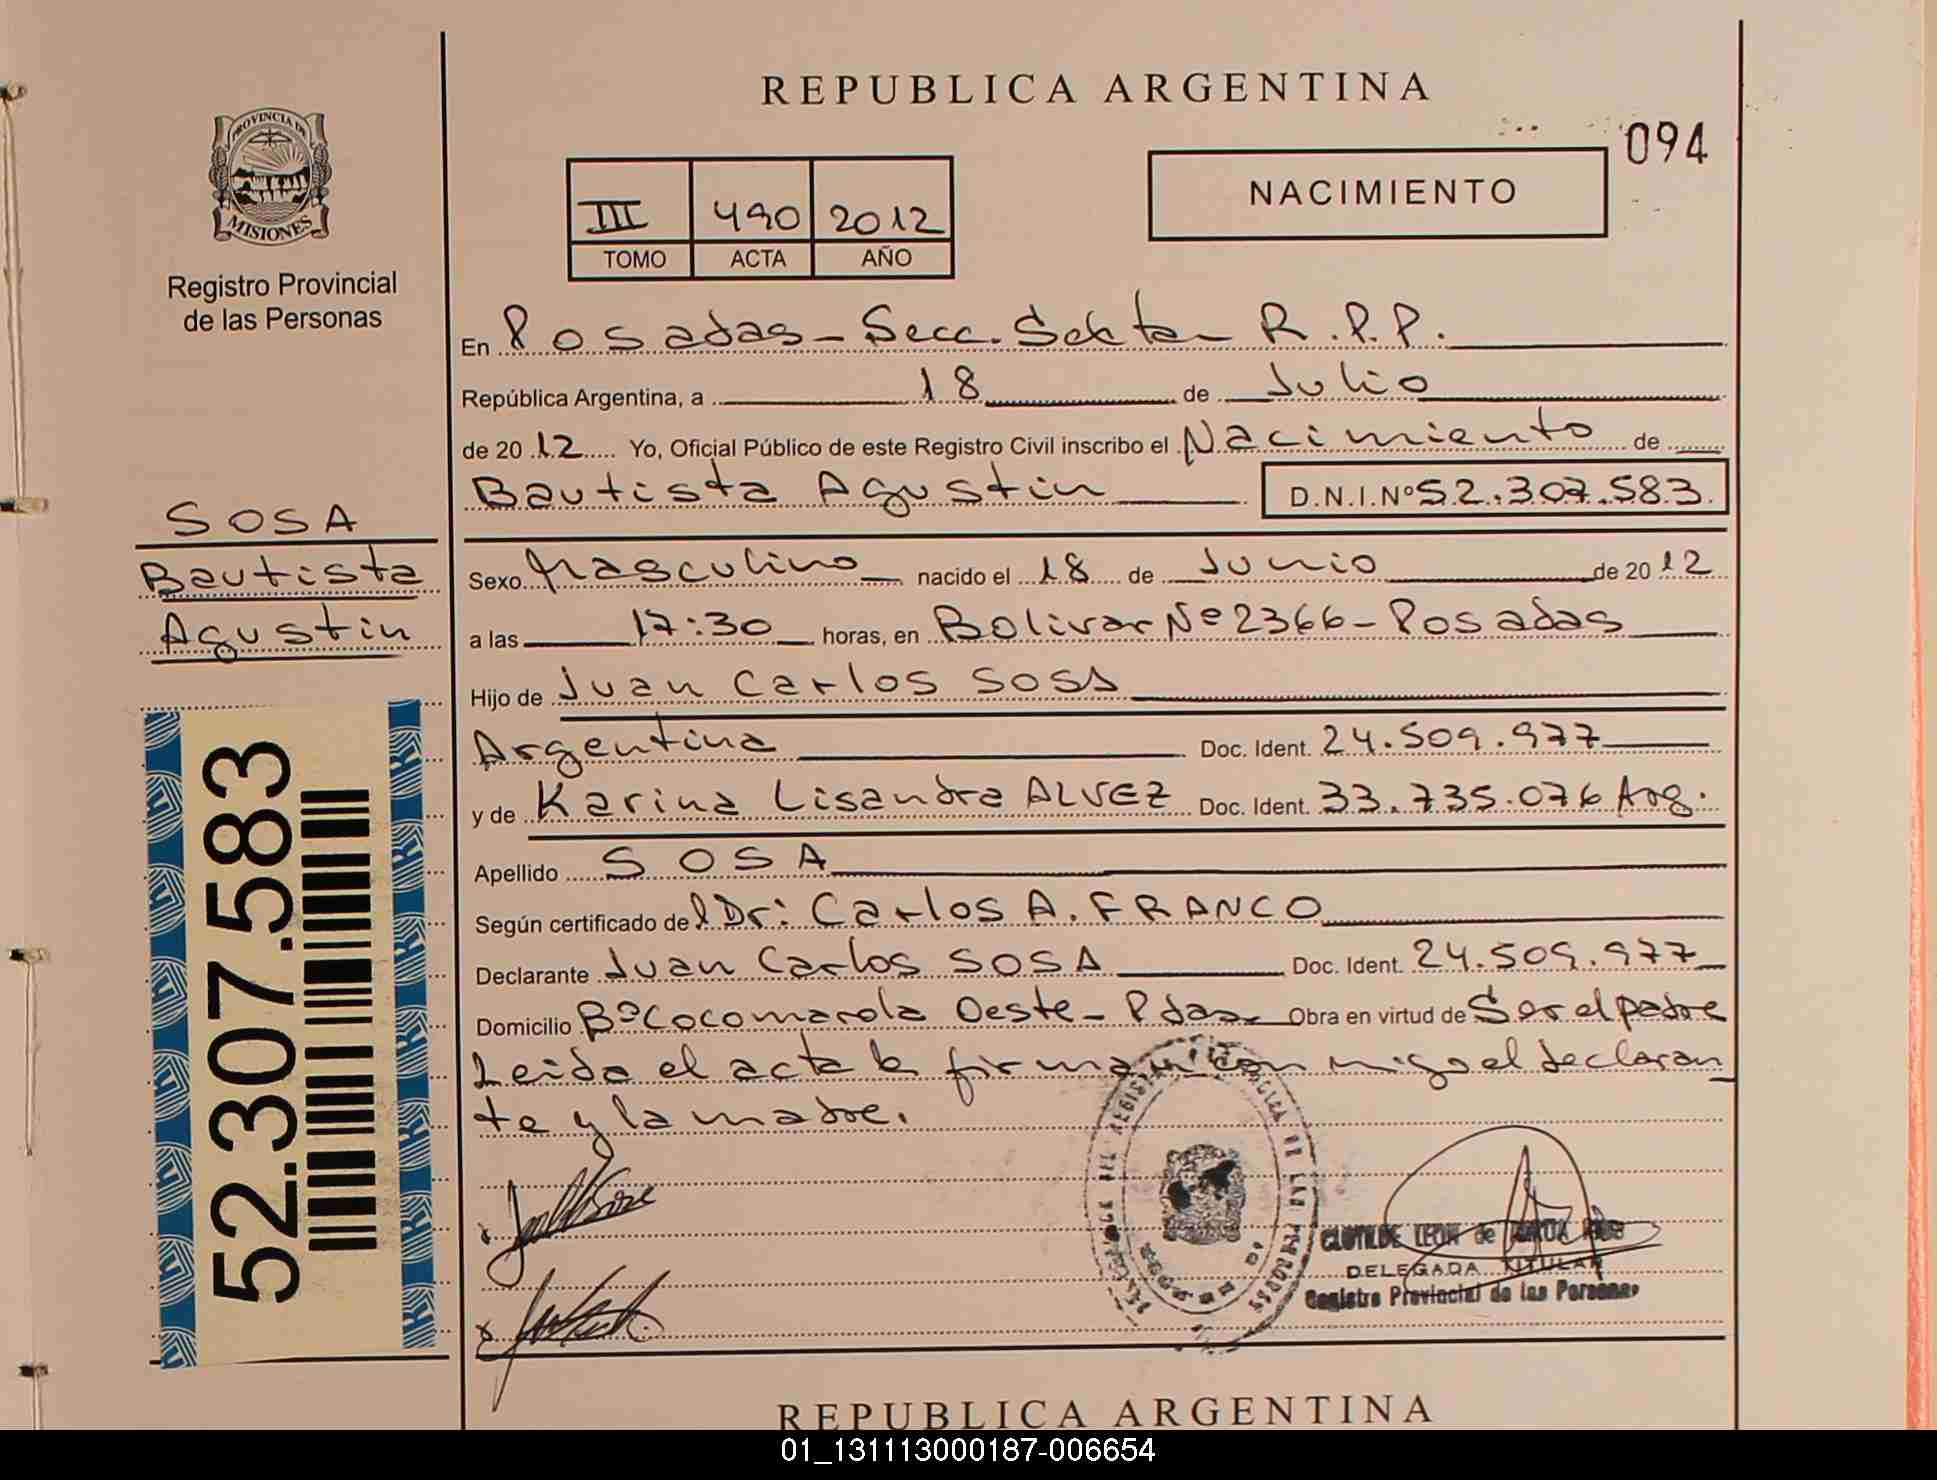 REPUBLICA ARGENTINA
094
NACIMIENTO
III 490 2012
TOMO ACTA AÑO
PROVINCIA DE
MISIONES
Registro Provincial
de las Personas
SOSA
Bautista
Agustin
52.307.583
En Posadas - Secc. Sexta R.P.P.
República Argentina, a 18 de Julio
de 2012 Yo, Oficial Público de este Registro Civil inscribo el Nacimiento de
Bautista Agustin D.N.I.Nº 52.307.583
Sexo Masculino nacido el 18 de Junio de 2012
a las 17:30 horas, en Bolivar Nº 2366 - Posadas
Hijo de Juan Carlos SOSA
Argentina Doc. Ident. 24.509.977
y de Karina Lisandra ALVEZ Doc. Ident. 33.735.076 Arg.
Apellido SOSA
Según certificado del Dr: Carlos A. FRANCO
Declarante Juan Carlos SOSA Doc. Ident. 24.509.977
Domicilio Bº Cocomarola Oeste - Pdas Obra en virtud de Ser el padre
Leida el acta la firman con migo el declaran
te y la madre.
CLOTILDE LEON de
DELEGADA TITULAR
Registro Provincial de las Personas
REPUBLICA ARGENTINA
01_131113000187-006654